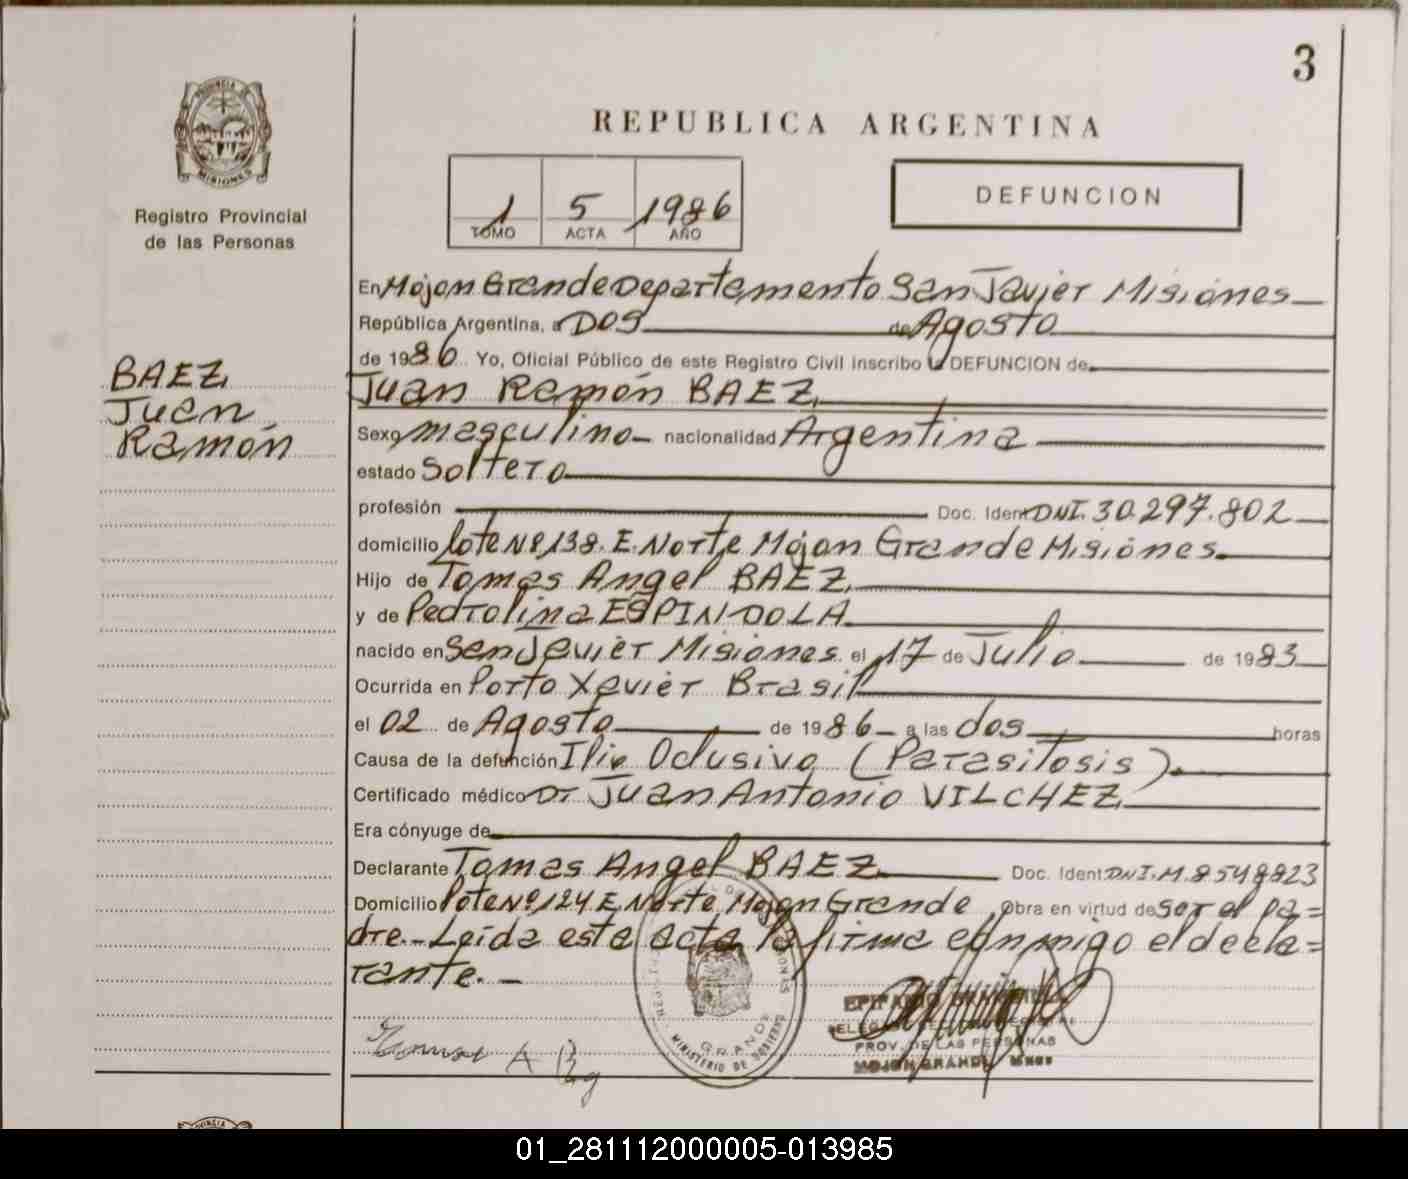 3
PROVINCIA DE
MISIONES
Registro Provincial
de las Personas
REPUBLICA ARGENTINA
1 5 1986
TOMO ACTA AÑO
DEFUNCION
BAEZ,
Juan
Ramón
En Mojon Grande Departamento San Javier Misiones
República Argentina, a DOS de Agosto
de 1986 Yo, Oficial Público de este Registro Civil inscribo la DEFUNCION de
Juan Ramón BAEZ,
Sexo masculino nacionalidad Argentina
estado Soltero
profesión Doc. Ident DNI. 30.297.802
domicilio lote Nº 138. E. Norte Mojon Grande Misiones.
Hijo de Tomas Angel BAEZ,
y de Pedrolina ESPINDOLA
nacido en San Javier Misiones el 17 de Julio de 1983
Ocurrida en Porto Xavier Brasil
el 02 de Agosto de 1986 a las dos horas
Causa de la defunción Ilio Oclusivo (Parasitosis).
Certificado médico Dr Juan Antonio VILCHEZ,
Era cónyuge de
Declarante Tomas Angel BAEZ Doc. Ident DNI. M. 8548823
Domicilio lote Nº 124 E. Norte Mojon Grande, Obra en virtud de ser el pa=
dre.- Leída esta acta la firma conmigo el decla=
rante.-
GRANDE
MINISTERIO DE GOBIERNO
PROV. DE LAS PERSONAS
MOJON GRANDE
01_281112000005-013985